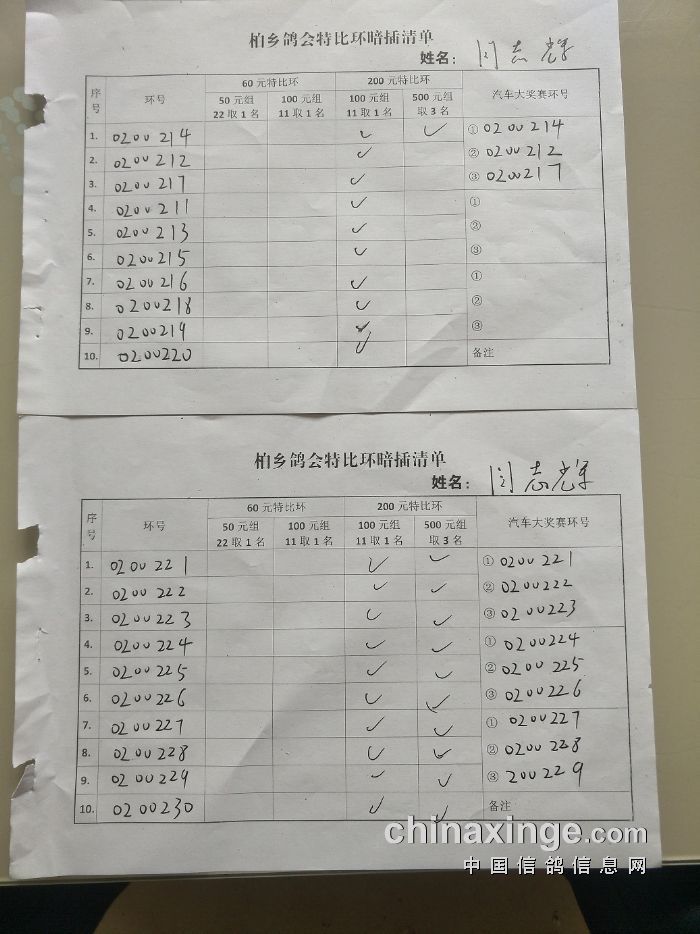 柏乡鸽会特比环暗插清单
姓名： 闫志辉
序号 环号 60 元特比环 200 元特比环 汽车大奖赛环号
50 元组 22 取 1 名 100 元组 11 取 1 名 100 元组 11 取 1 名 500 元组 取 3 名
1. 0200 214 ✓ ✓ ① 0200 214
2. 0200 212 ✓ ② 0200 212
3. 0200 217 ✓ ③ 0200217
4. 0200 211 ✓ ①
5. 0200 213 ✓ ②
6. 0200215 ✓ ③
7. 0200 216 ✓ ①
8. 0200218 ✓ ②
9. 0200219 ✓ ③
10. 0200220 ✓ 备注
柏乡鸽会特比环暗插清单
姓名： 闫志辉
序号 环号 60 元特比环 200 元特比环 汽车大奖赛环号
50 元组 22 取 1 名 100 元组 11 取 1 名 100 元组 11 取 1 名 500 元组 取 3 名
1. 0200 221 ✓ ✓ ① 0200 221
2. 0200 222 ✓ ✓ ② 0200222
3. 0200 223 ✓ ✓ ③ 0200223
4. 0200 224 ✓ ✓ ① 0200224
5. 0200 225 ✓ ✓ ② 0200 225
6. 0200 226 ✓ ✓ ③ 0200226
7. 0200 227 ✓ ✓ ① 0200227
8. 0200 228 ✓ ✓ ② 0200 228
9. 0200229 ✓ ✓ ③ 200229
10. 0200230 ✓ ✓ 备注
chinaxinge.com
中国信鸽信息网